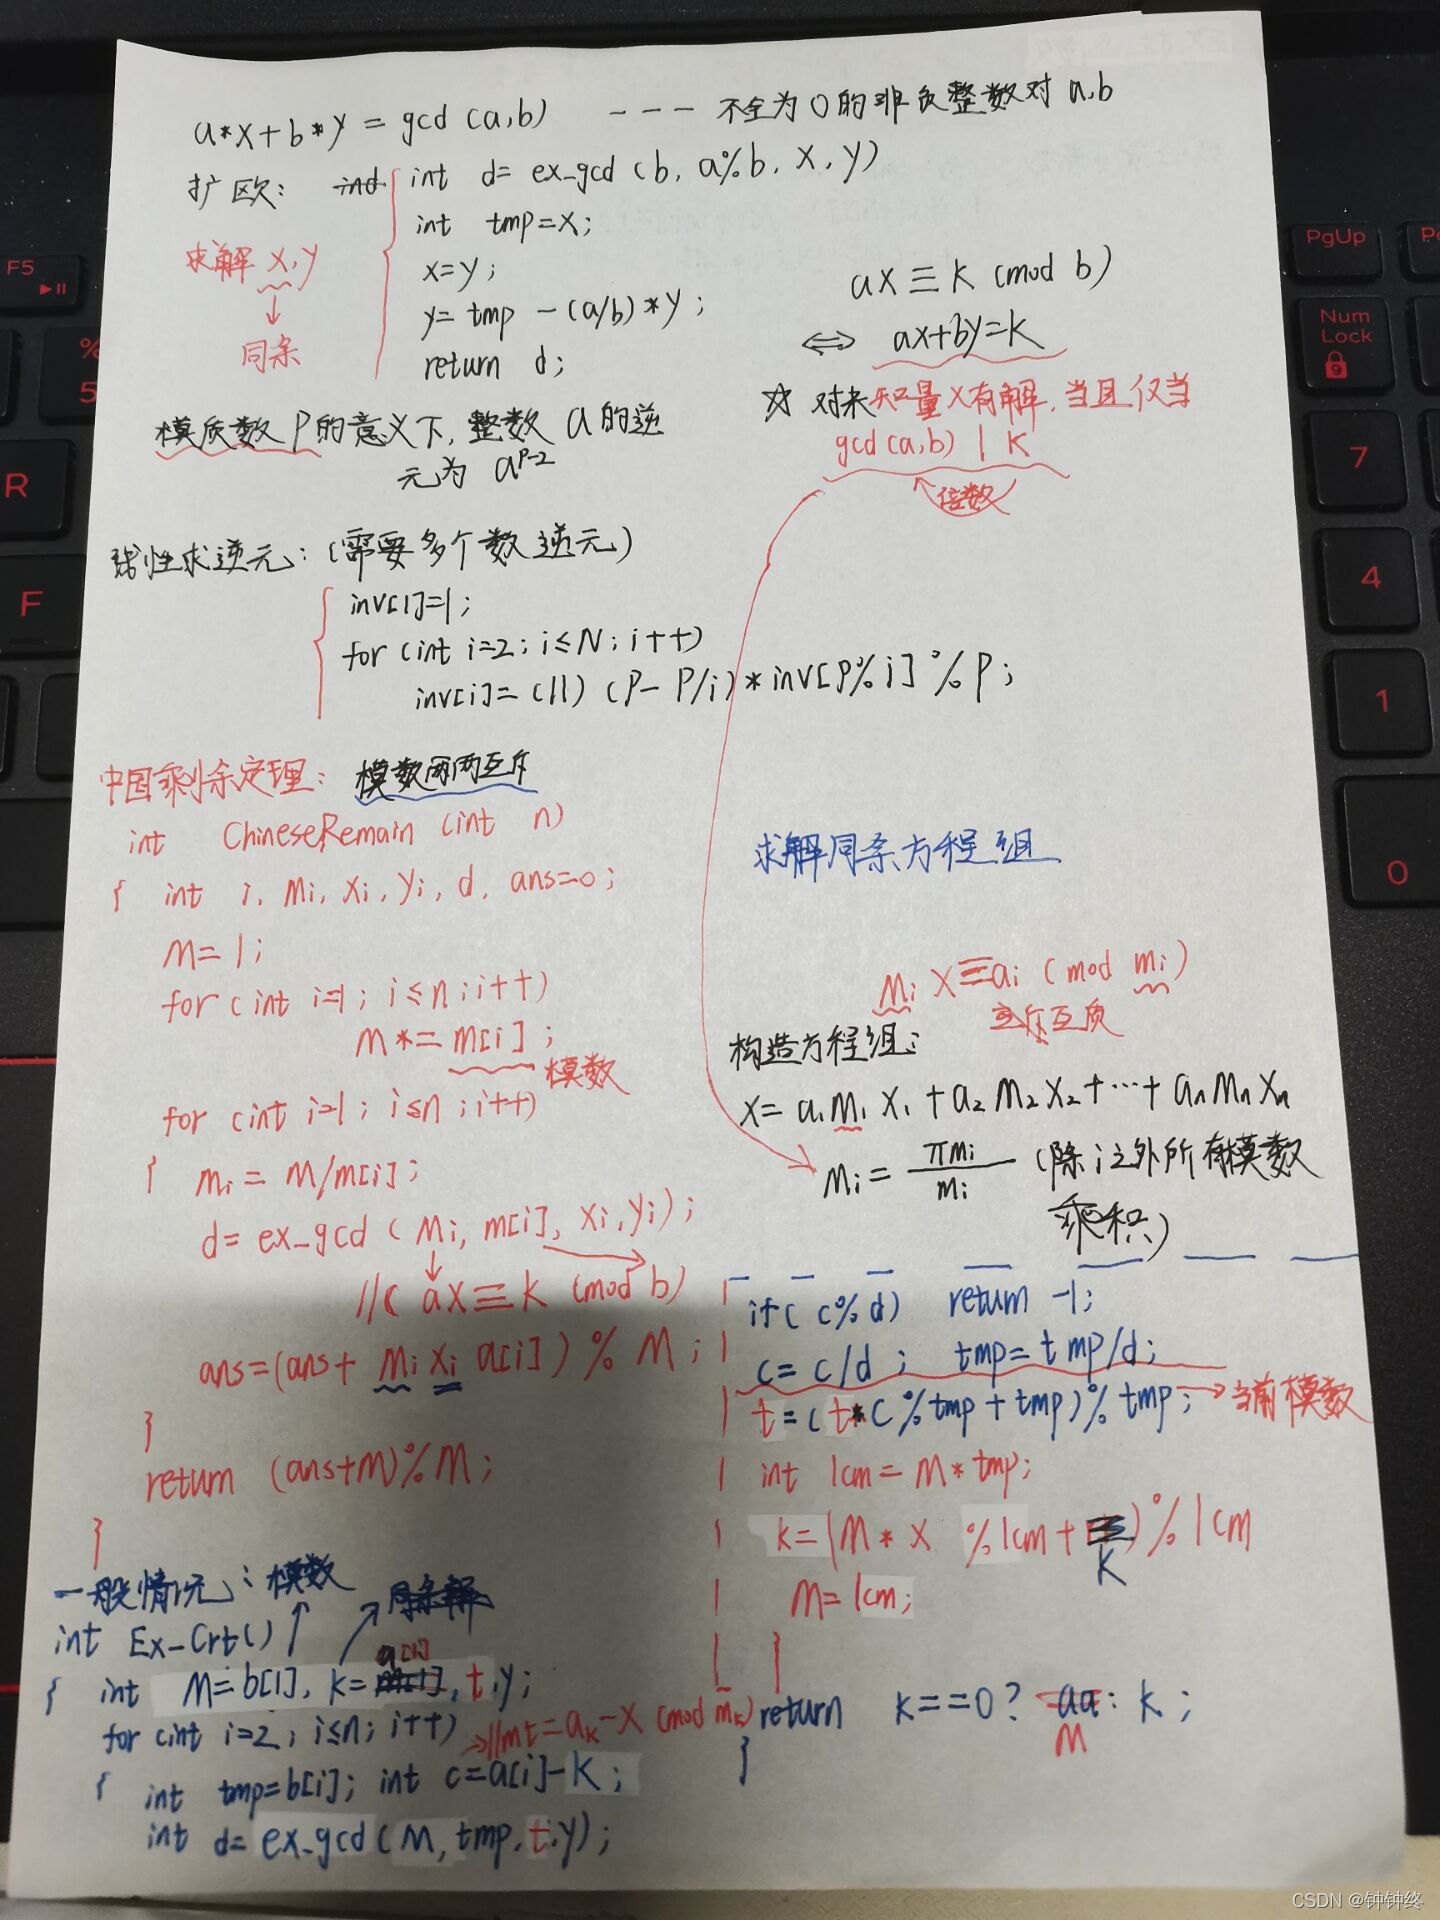 a*x+b*y=gcd(a,b) --- 不全为0的非负整数对a,b
扩欧: int d=ex_gcd(b,a%b,x,y)
int tmp=x;
求解x,y
x=y;
y=tmp-(a/b)*y;
同余
return d;
ax≡k (mod b)
⇔ ax+by=k
☆ 对未知量x有解,当且仅当
gcd(a,b) | k
倍数
模质数P的意义下,整数a的逆
元为 a^{p-2}
线性求逆元:(需要多个数逆元)
inv[1]=1;
for(int i=2;i≤N;i++)
inv[i]=(ll)(P-P/i)*inv[P%i]%P;
中国剩余定理: 模数两两互斥
int ChineseRemain(int n)
{ int i,Mi,xi,yi,d,ans=0;
M=1;
for(int i=1;i≤n;i++)
M*=m[i];
模数
for(int i=1;i≤n;i++)
{ Mi=M/m[i];
d=ex_gcd(Mi,m[i],xi,yi);
//( ax≡k (mod b)
ans=(ans+Mi xi a[i])%M;
}
return (ans+M)%M;
}
求解同余方程组
Mi x≡ai (mod mi)
互质
构造方程组:
x=a₁M₁x₁+a₂M₂x₂+…+aₙMₙxₙ
Mi=πmi/mi (除i之外所有模数
乘积)
一般情况:模数
同余解
int Ex_Crt()
{ int M=b[1],k=a[1],t,y;
for(int i=2;i≤n;i++) →//mt=aₖ-x (mod mₖ)
{ int tmp=b[i];int c=a[i]-k;
int d=ex_gcd(M,tmp,t,y);
if(c%d) return -1;
c=c/d; tmp=tmp/d;
t=(t*c%tmp+tmp)%tmp; →当前模数
int lcm=M*tmp;
k=(M*x %lcm+k)%lcm
M=lcm;
}
return k==0? M:k;
}
F5
%
5
R
F
PgUp
Num
Lock
7
4
1
0
CSDN @钟钟终